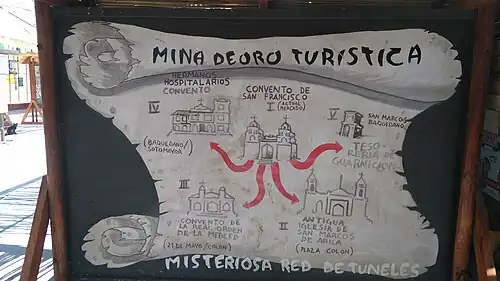 MINA DE ORO TURÍSTICA
HERMANOS
HOSPITALARIOS
CONVENTO
IV
(BAQUEDANO/
SOTOMAYOR)
CONVENTO DE
SAN FRANCISCO
I (ACTUAL
MERCADO)
V
SAN MARCOS
BAQUEDANO
TESO-
RERIA DE
GUARNICION
III
CONVENTO DE
LA REAL ORDEN
DE LA MERCED
(21 DE MAYO/COLON)
II
ANTIGUA
IGLESIA DE
SAN MARCOS
DE ARICA
(PLAZA COLON)
MISTERIOSA RED DE TUNELES